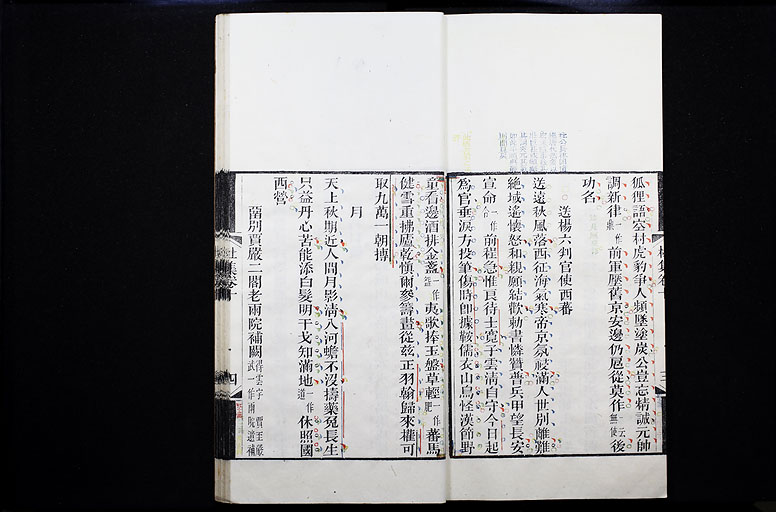 狐狸語空村虎豹爭人頻墜塗炭公豈忘精誠元帥
調新律一作前軍壓舊京安邊仍扈從莫作後
功名
送楊六判官使西蕃
送遠秋風落西征海氣寒帝京氛祲滿人世別離難
絕域遙懷怒和親願結歡勅書憐贊普兵甲望長安
宣命一作前程急惟良待士寬子雲清自守今日起
為官垂淚方投筆傷時即據鞍儒衣山鳥怪漢節野
童看邊酒排金盞一作夷歌捧玉盤草輕一作肥蕃馬
健雪重拂廬乾慎爾參籌畫從茲正羽翰歸來權可
取九萬一朝摶
月
天上秋期近人間月影清入河蟾不沒擣藥兔長生
只益丹心苦能添白髮明干戈知滿地一作道休照國
西營
留別賈嚴二閣老兩院補闕得雲字
杜集卷十
四